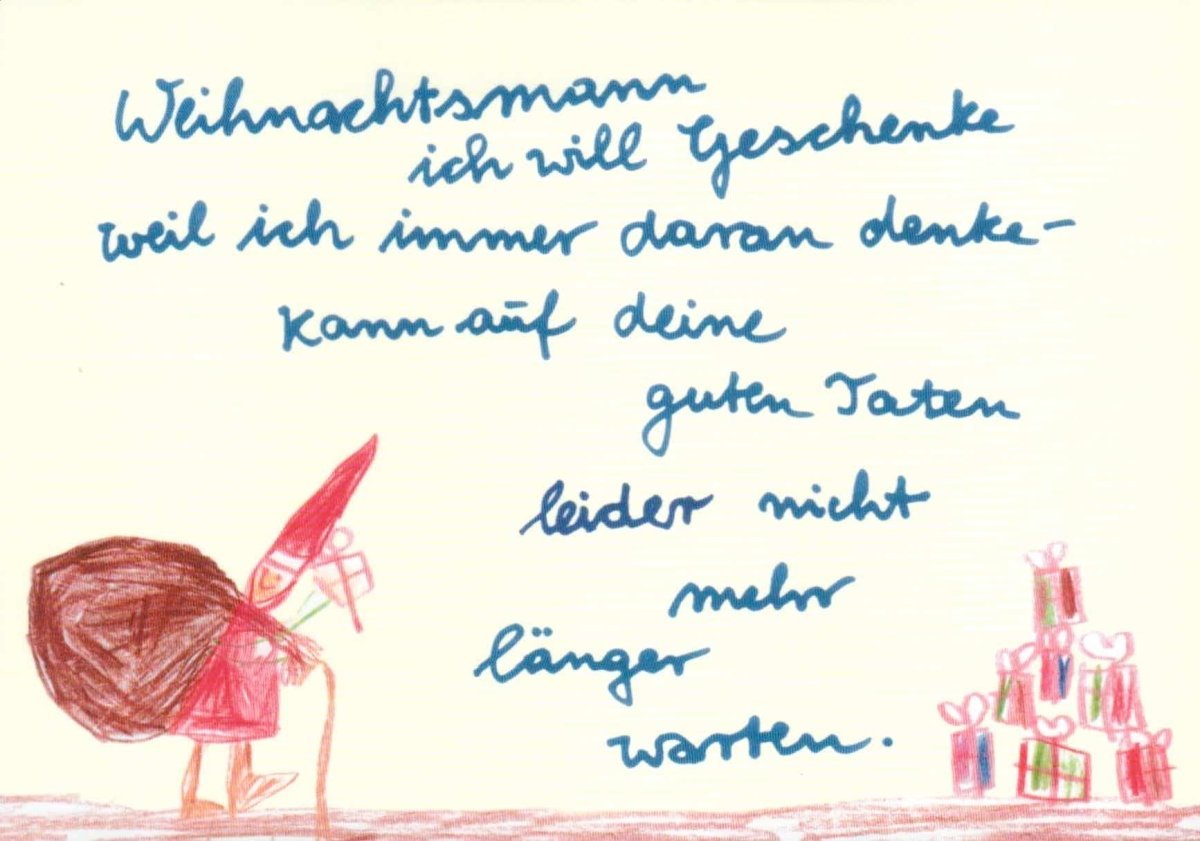 Weihnachtsmann
ich will Geschenke
weil ich immer daran denke-
kann auf deine
guten Taten
leider nicht
mehr
länger
warten.